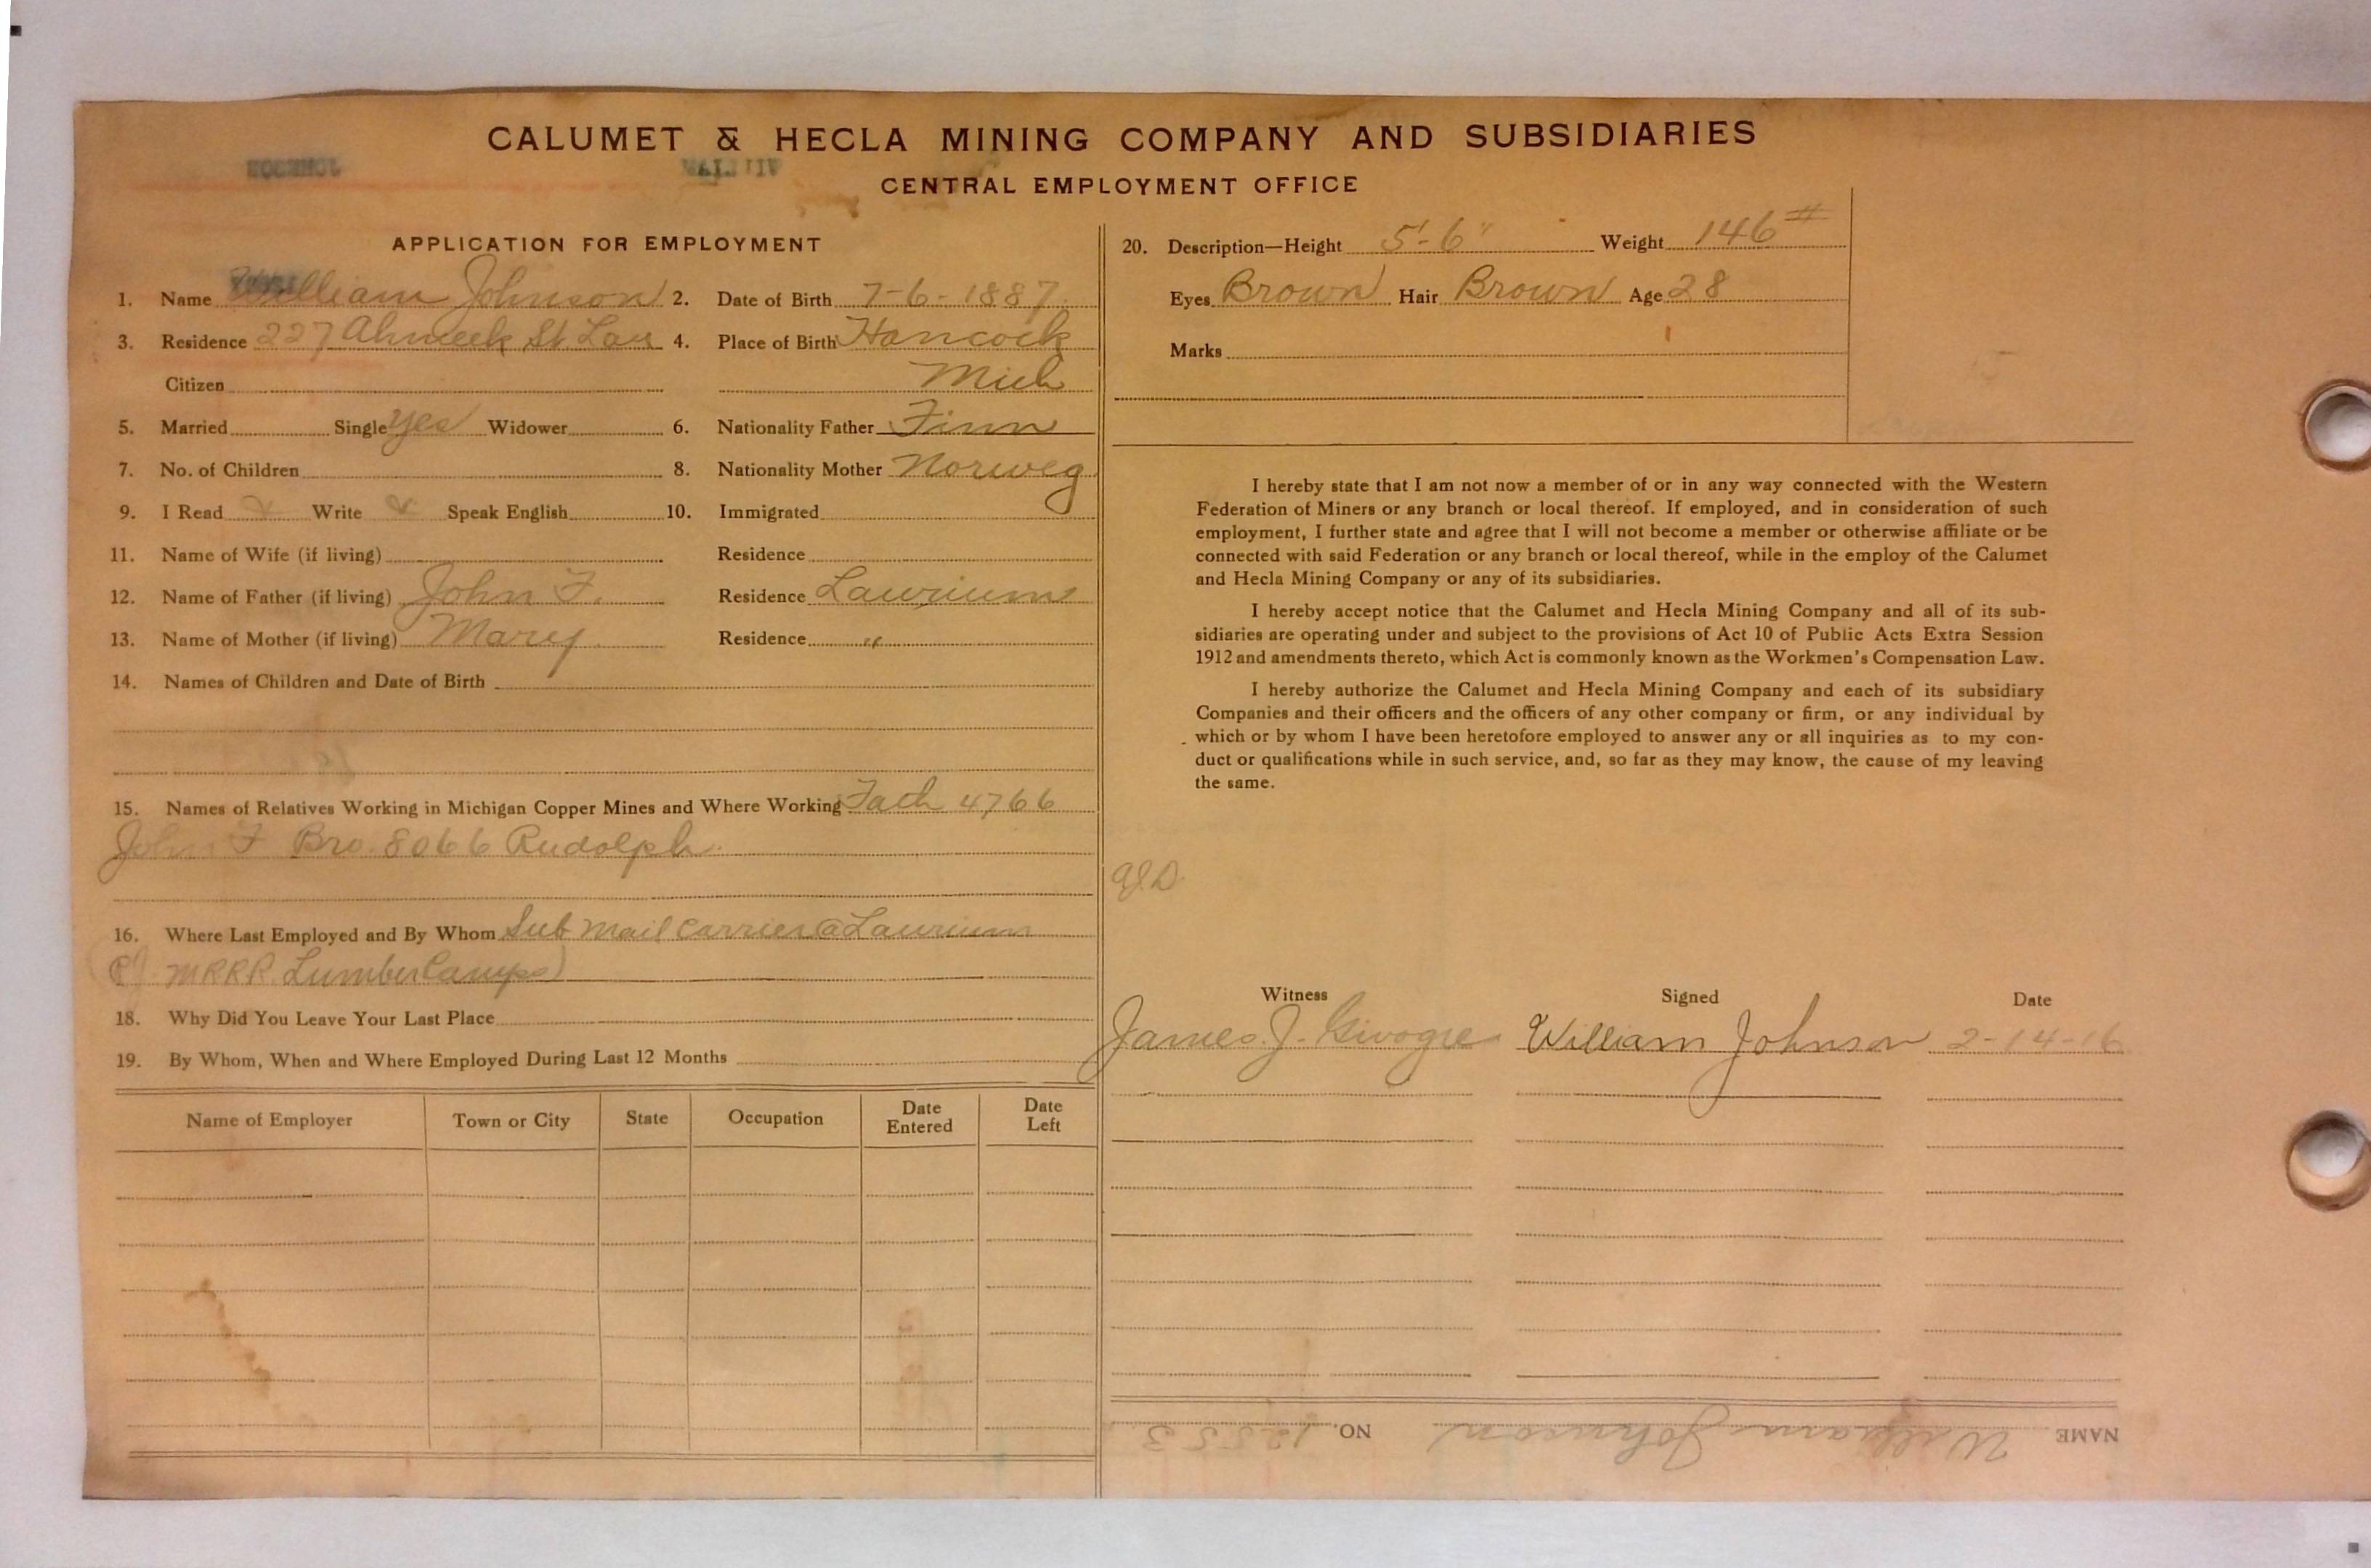 CALUMET & HECLA MINING COMPANY AND SUBSIDIARIES
JOHNSON WILLIAM
CENTRAL EMPLOYMENT OFFICE
APPLICATION FOR EMPLOYMENT
1. Name William Johnson 2. Date of Birth 7-6-1887
3. Residence 227 Ahmeek St. Lau 4. Place of Birth Hancock
Citizen Mich
5. Married Single yes Widower 6. Nationality Father Finn
7. No. of Children 8. Nationality Mother Norweg
9. I Read Write Speak English 10. Immigrated
11. Name of Wife (if living) Residence
12. Name of Father (if living) John F. Residence Laurium
13. Name of Mother (if living) Mary Residence "
14. Names of Children and Date of Birth
15. Names of Relatives Working in Michigan Copper Mines and Where Working Fath 4766
John F Bro. 8066 Rudolph.
16. Where Last Employed and By Whom Sub Mail Carrier @ Laurium
MRRR. Lumber Camps)
18. Why Did You Leave Your Last Place
19. By Whom, When and Where Employed During Last 12 Months
Name of Employer Town or City State Occupation Date Entered Date Left
20. Description—Height 5'-6" Weight 146#
Eyes Brown Hair Brown Age 28
Marks
I hereby state that I am not now a member of or in any way connected with the Western
Federation of Miners or any branch or local thereof. If employed, and in consideration of such
employment, I further state and agree that I will not become a member or otherwise affiliate or be
connected with said Federation or any branch or local thereof, while in the employ of the Calumet
and Hecla Mining Company or any of its subsidiaries.
I hereby accept notice that the Calumet and Hecla Mining Company and all of its sub-
sidiaries are operating under and subject to the provisions of Act 10 of Public Acts Extra Session
1912 and amendments thereto, which Act is commonly known as the Workmen's Compensation Law.
I hereby authorize the Calumet and Hecla Mining Company and each of its subsidiary
Companies and their officers and the officers of any other company or firm, or any individual by
which or by whom I have been heretofore employed to answer any or all inquiries as to my con-
duct or qualifications while in such service, and, so far as they may know, the cause of my leaving
the same.
Witness Signed Date
James J. William Johnson 2-14-16
NAME William Johnson NO. 12553